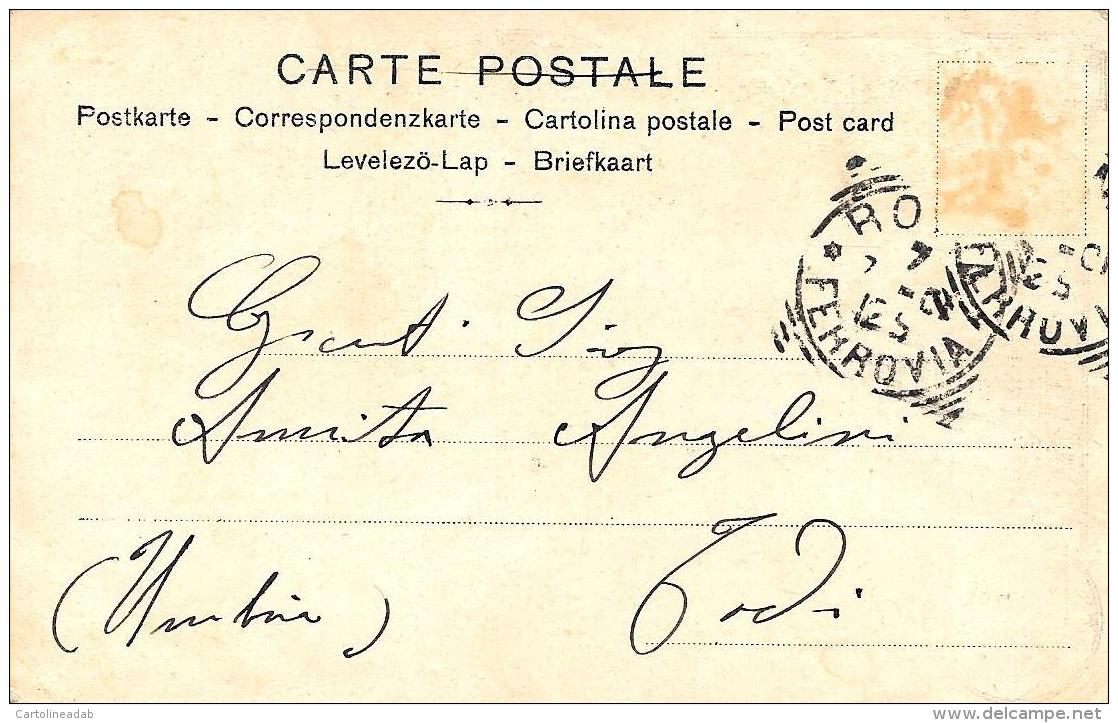 CARTE POSTALE
Postkarte - Correspondenzkarte - Cartolina postale - Post card
Levelezö-Lap - Briefkaart
RO
FERROVIA
FERROVIA
Gent. Sig
Annita Angelini
Todi
(Umbria)
Cartolineadab
delcampe.net